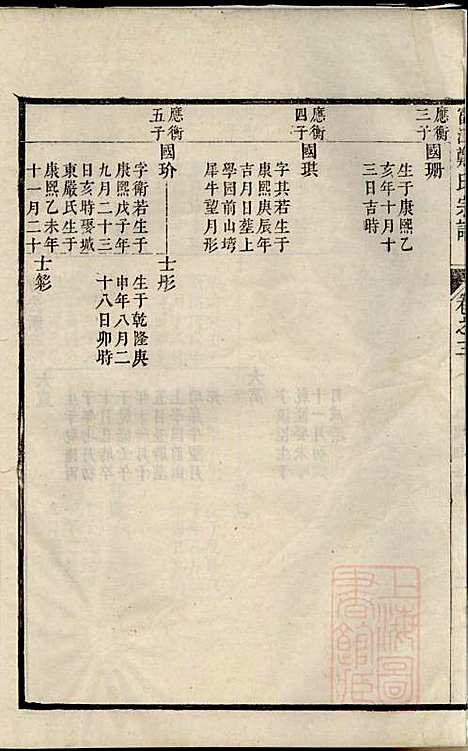 氏宗譜
卷之三
應衡
三子
國珊
生于康熙乙
亥年十月十
三日吉時
應衡
四子
國琪
字其若生于
康熙庚辰年
吉月日塟上
學園前山塆
犀牛望月形
應衡
五子
國玠
字衛若生于
康熙戊子年
九月二十三
日亥時娶城
東嚴氏生于
康熙乙未年
十一月二十
士彤
生于乾隆庚
申年八月二
十八日卯時
士
上海圖
書館臧